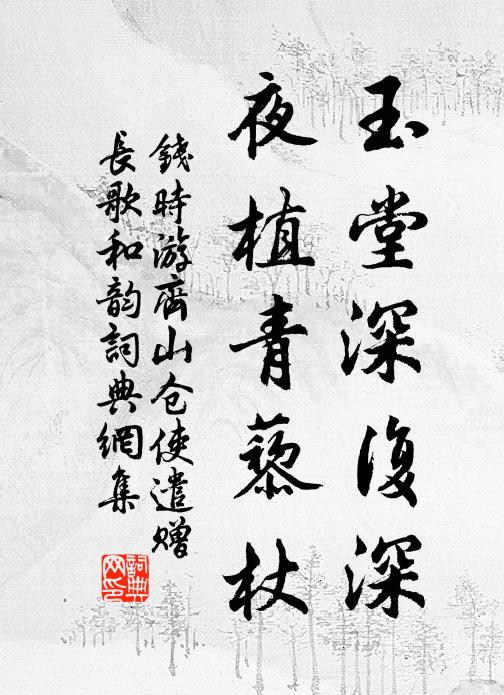 玉堂深復深
夜植青藜杖
錢時游齊山仓使遣贈
長歌和韵詞典網集
詞典
网印